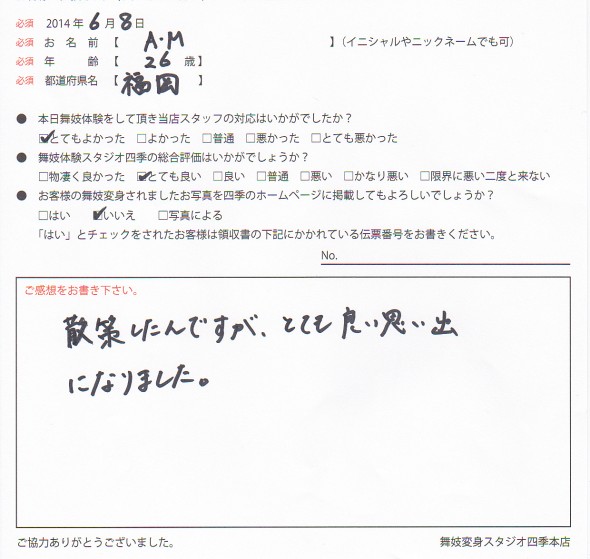 必須 2014年6月8日
必須 お名前【 A・M 】(イニシャルやニックネームでも可)
必須 年齢【 26 歳】
必須 都道府県名【 福岡 】
● 本日舞妓体験をして頂き当店スタッフの対応はいかがでしたか?
☑とてもよかった □よかった □普通 □悪かった □とても悪かった
● 舞妓体験スタジオ四季の総合評価はいかがでしょうか?
□物凄く良かった ☑とても良い □良い □普通 □悪い □かなり悪い □限界に悪い二度と来ない
● お客様の舞妓変身されましたお写真を四季のホームページに掲載してもよろしいでしょうか?
□はい ☑いいえ □写真による
「はい」とチェックをされたお客様は領収書の下記にかかれている伝票番号をお書きください。
No.
ご感想をお書き下さい。
散策したんですが、とても良い思い出
になりました。
ご協力ありがとうございました。 舞妓変身スタジオ四季本店